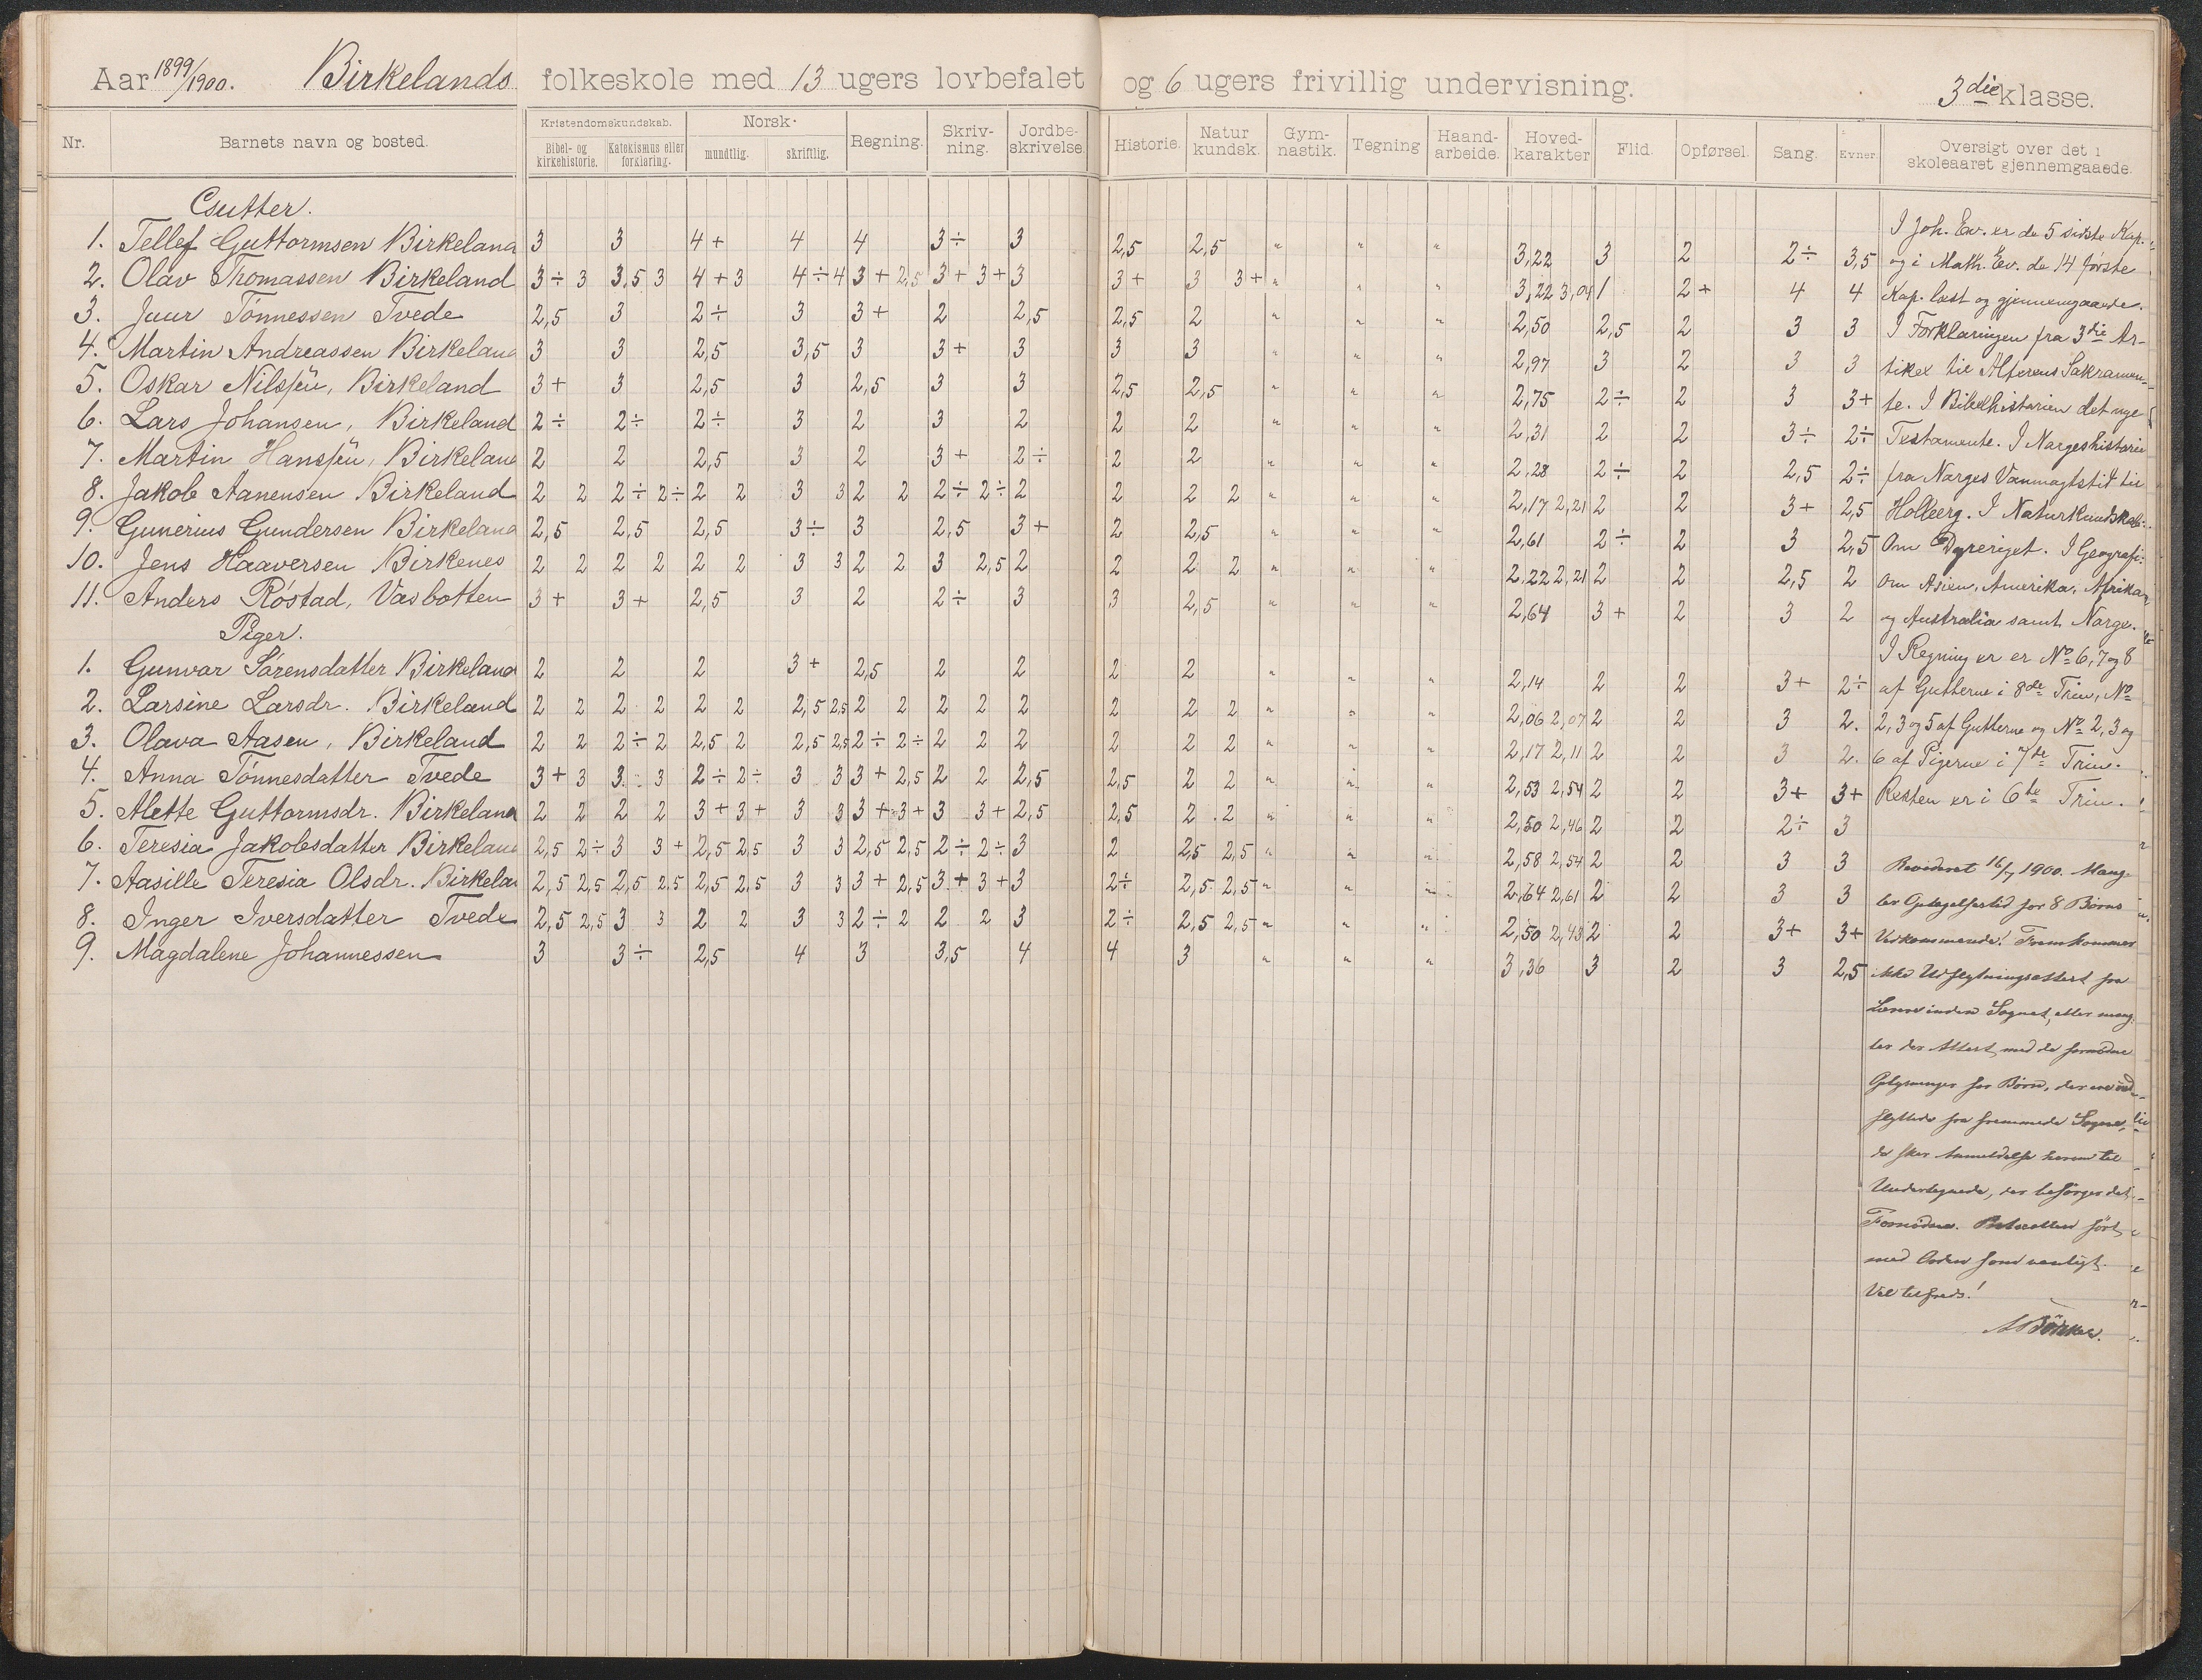 Aar 1899/1900. Birkelands folkeskole med 13 ugers lovbefalet og 6 ugers frivillig undervisning. 3die klasse.
Nr. Barnets navn og bosted. Kristendomskundskab. Bibel- og kirkehistorie. Katekismus eller forklaring. Norsk. mundtlig. skriftlig. Regning. Skriv-ning. Jordbe-skrivelse. Historie. Natur kundsk. Gym-nastik. Tegning Haand-arbeide. Hoved-karakter Flid. Opførsel. Sang. Evner. Oversigt over det i skoleaaret gjennemgaaede.
Gutter.
1. Tellef Guttormsen Birkeland 3 3 4+ 4 4 3÷ 3 2,5 2,5 " " " 3,22 3 2 2÷ 3,5
2. Olav Thomassen Birkeland 3÷ 3 3,5 3 4+ 3 4÷ 4 3+ 2,5 3+ 3+ 3 3+ 3 3+ " " " 3,22 3,04 1 2+ 4 4
3. Juur Tønnessen Tvede 2,5 3 2÷ 3 3+ 2 2,5 2,5 2 " " " 2,50 2,5 2 3 3
4. Martin Andreassen Birkeland 3 3 2,5 3,5 3 3+ 3 3 3 " " " 2,97 3 2 3 3
5. Oskar Nilssen, Birkeland 3+ 3 2,5 3 2,5 3 3 2,5 2,5 " " " 2,75 2÷ 2 3 3+
6. Lars Johansen, Birkeland 2÷ 2÷ 2÷ 3 2 3 2 2 2 " " " 2,31 2 2 3÷ 2÷
7. Martin Hanssen, Birkeland 2 2 2,5 3 2 3+ 2÷ 2 2 " " " 2,28 2÷ 2 2,5 2÷
8. Jakob Aanensen Birkeland 2 2 2÷ 2÷ 2 2 3 3 2 2 2÷ 2÷ 2 2 2 2 " " " 2,17 2,21 2 2 3+ 2,5
9. Gunerius Gundersen Birkeland 2,5 2,5 2,5 3÷ 3 2,5 3+ 2 2,5 " " " 2,61 2÷ 2 3 2,5
10. Jens Haaversen Birkenes 2 2 2 2 2 2 3 3 2 2 3 2,5 2 2 2 2 " " " 2,22 2,21 2 2 2,5 2
11. Anders Røstad, Vasbotten 3+ 3+ 2,5 3 2 2÷ 3 3 2,5 " " " 2,64 3+ 2 3 2
Piger.
1. Gunvar Sørensdatter Birkeland 2 2 2 3+ 2,5 2 2 2 2 " " " 2,14 2 2 3+ 2÷
2. Larsine Larsdr. Birkeland 2 2 2 2 2 2 2,5 2,5 2 2 2 2 2 2 2 2 " " " 2,06 2,07 2 2 3 2.
3. Olava Aasen, Birkeland 2 2 2÷ 2 2,5 2 2,5 2,5 2÷ 2÷ 2 2 2 2 2 2 " " " 2,17 2,11 2 2 3 2.
4. Anna Tønnesdatter Tvede 3+ 3 3 3 2÷ 2÷ 3 3 3+ 2,5 2 2 2,5 2,5 2 2 " " " 2,53 2,54 2 2 3+ 3+
5. Alette Guttormsdr. Birkeland 2 2 2 2 3+ 3+ 3 3 3+ 3+ 3 3+ 2,5 2,5 2 2 " " " 2,50 2,46 2 2 2÷ 3
6. Teresia Jakobsdatter Birkeland 2,5 2÷ 3 3+ 2,5 2,5 3 3 2,5 2,5 2÷ 2÷ 3 2 2,5 2,5 " " " 2,58 2,54 2 2 3 3
7. Aasille Teresia Olsdr. Birkela 2,5 2,5 2,5 2,5 2,5 2,5 3 3 3+ 2,5 3+ 3+ 3 2÷ 2,5 2,5 " " " 2,64 2,61 2 2 3 3
8. Inger Iversdatter Tvede 2,5 2,5 3 3 2 2 3 3 2÷ 2 2 2 3 2÷ 2,5 2,5 " " " 2,50 2,43 2 2 3+ 3+
9. Magdalene Johannessen 3 3÷ 2,5 4 3 3,5 4 4 3 " " " 3,36 3 2 3 2,5
I Joh. Ev. er de 5 sidste Kap.
og i Math. Ev. de 14 første
Kap. læst og gjennemgaaede.
I Forklaringen fra 3die Ar-
tikel til Alterens Sakramen-
te. I Bibelhistorien det nye
Testamente. I Norgeshistorie
fra Norges Vanmagtstid til
Holberg. I Naturkundskab:
Om Dyreriget. I Geografi:
Om Asien, Amerika, Afrika
og Australia samt Norge.
I Regning er er No 6, 7 og 8
af Gutterne i 8de Trin, No
2, 3 og 5 af Gutterne og No 2, 3 og
6 af Pigerne i 7de Trin.
Resten er i 6te Trin.
Revideret 16/7 1900. Mang-
ler Optagelsestid for 8 Børns
Vedkommende! Fremkommer
ikke Udflytningsattest fra
Lærer inden Sognet, eller mang-
ler der Attest med de fornødne
Oplysninger for Børn, der ere ind-
flyttede fra fremmede Sogne,
da sker Anmeldelse herom til
Undertegnede, der besørger det
Fornødne. Protocollen ført
med Orden som vanligt.
Vel tilfreds!